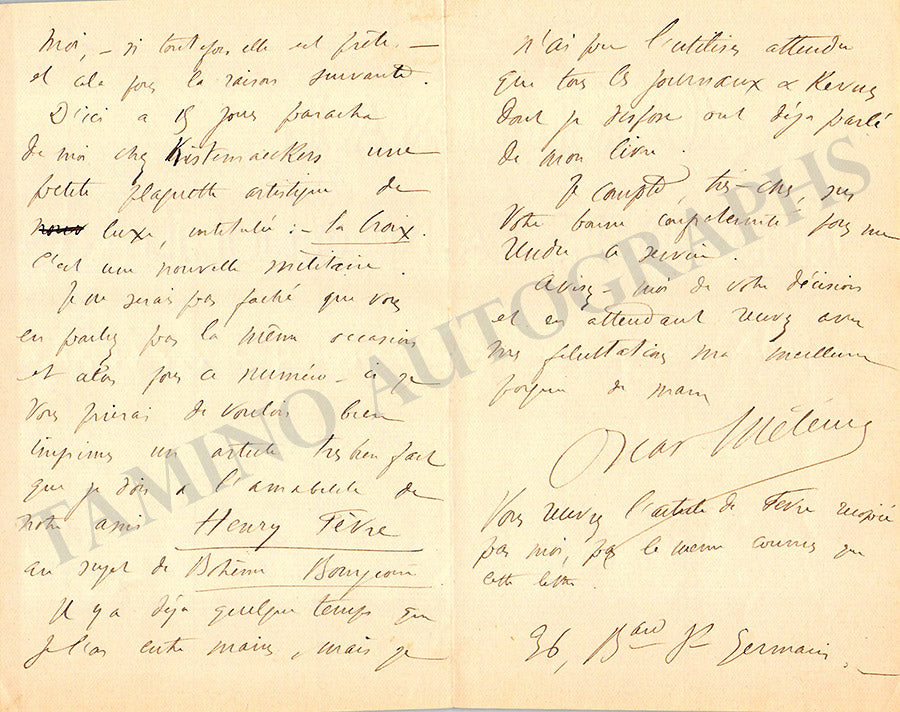 Moi, – si toutefois elle est prête. –
et cela pour la raison suivante.
D'ici a 15 jours paraitra
de moi chez Kistemaeckers une
petite plaquette artistique de
luxe, intitulée: – La Croix.
C'est une nouvelle militaire.
Je ne serais pas faché que vous
en parliez par la même occasion
et alors pour ce numéro-ci je
vous prierai de vouloir bien
imprimer un article tres bien fait
que je dois a l'amabilité de
notre ami Henry Fèvre
au sujet de Bohême Bourgeoise.
Il y a déja quelque temps que
je l'ai entre mains, mais je
n'ai pu l'utiliser attendu
que tous les journaux & Revues
dont je dispose ont déja parlé
de mon livre.
Je compte, très-cher, sur
votre bonne confraternité pour me
rendre ce service.
Avisez-moi de votre décision
et en attendant recevez avec
mes félicitations ma meilleure
poignée de main
Oscar Méténier
Vous recevrez l'article de Fèvre recopié
par moi, par le même courrier que
cette lettre.
36, Bard St Germain.
TAMINO AUTOGRAPHS